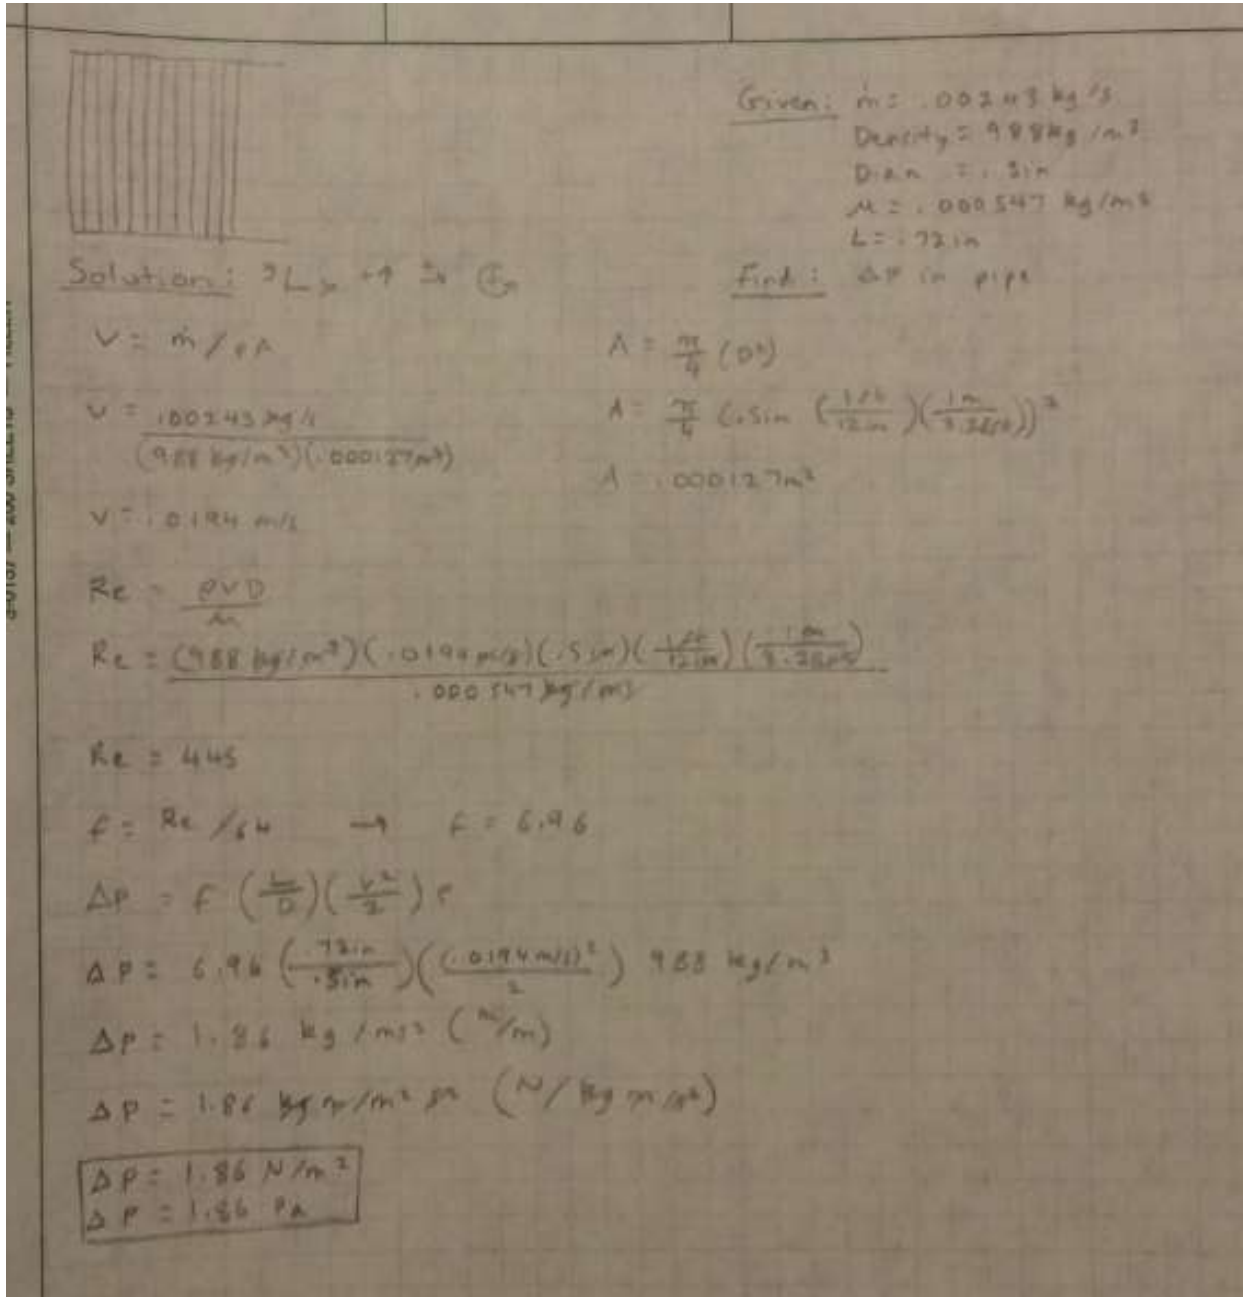 Given: ṁ = .00243 kg/s
Density = 988kg/m³
Diam = .5in
μ = .000547 kg/ms
L = .72in
Find: ΔP in pipe
Solution:
V = ṁ/ρA
A = π/4 (D²)
V = .00243 kg/s / (988 kg/m³)(.000127m²)
A = π/4 (.5in (1ft/12in)(1m/3.28ft))²
A = .000127m²
V = .0194 m/s
Re = ρVD/μ
Re = (988 kg/m³)(.0194 m/s)(.5in)(1ft/12in)(1m/3.28ft) / .000547 kg/ms
Re = 445
f = Re/64 → f = 6.96
ΔP = f (L/D)(V²/2) ρ
ΔP = 6.96 (.72in/.5in)((.0194m/s)²/2) 988 kg/m³
ΔP = 1.86 kg/ms² (m/m)
ΔP = 1.86 kg m/m² s² (N/kg m/s²)
ΔP = 1.86 N/m²
ΔP = 1.86 Pa